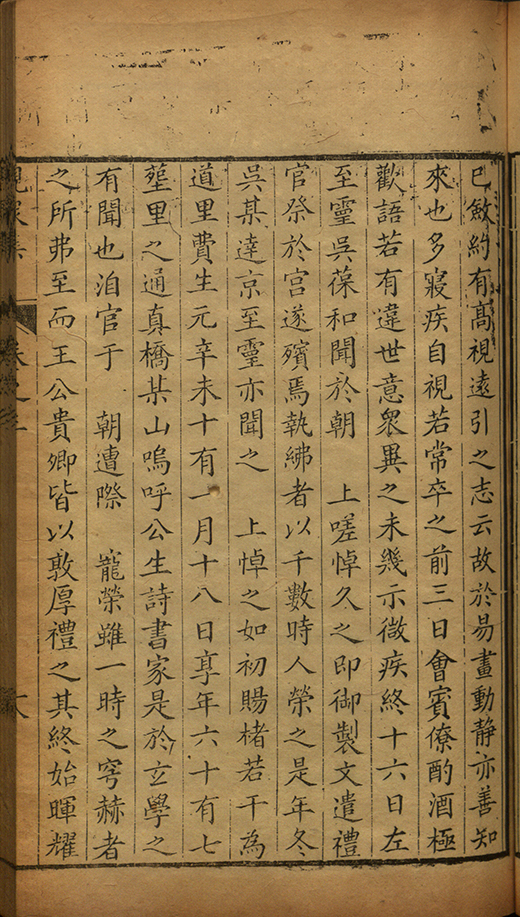 已斂約有高視遠引之志云故於易畫動靜亦善知
來也多寢疾自視若常卒之前三日會賓僚酌酒極
歡語若有違世意衆異之未幾示微疾終十六日左
至靈吳葆和聞於朝　上嗟悼久之即御製文遣禮
官祭於宮遂殯焉執紼者以千數時人榮之是年冬
吳某達京至靈亦聞之　上悼之如初賜楮若干為
道里費生元辛未十有一月十八日享年六十有七
塟里之通真橋某山嗚呼公生詩書家是於玄學之
有聞也洎官于　朝遭際　寵榮雖一時之穹赫者
之所弗至而王公貴卿皆以敦厚禮之其終始暉耀